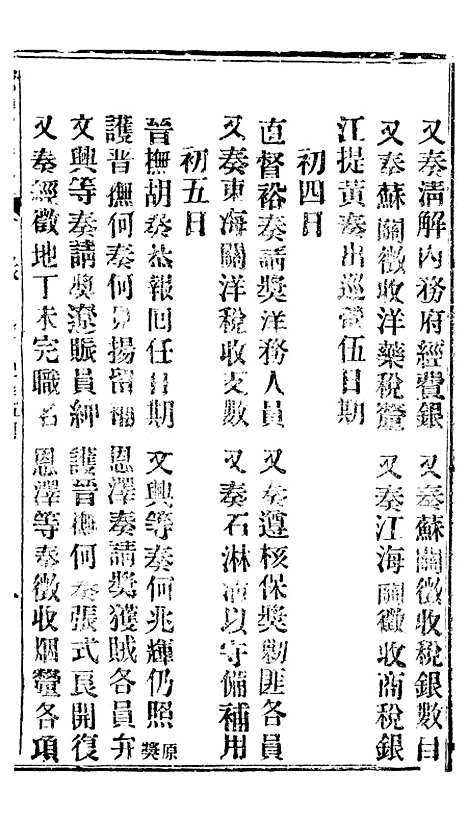 又奏清解內務府經費銀　又奏蘇關徵收稅銀數目
又奏蘇關徵收洋藥稅釐　又奏江海關徵收商稅銀
江提黃奏出巡營伍日期
初四日
直督裕奏請獎洋務人員　又奏遵核保獎剿匪各員
又奏東海關洋稅收支數　又奏石淋以守備補用
初五日
晉撫胡奏恭報回任日期　文興等奏何兆輝仍照原獎
護晋撫何奏何揚留補　恩澤奏請獎獲賊各員弁
文興等奏請獎遼賑員紳　護晉撫何奏張式良開復
又奏經徵地丁未完職名　恩澤等奏徵收烟釐各項